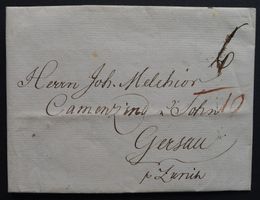 Herrn Joh. Melchior
Camenzind & Sohn
Gersau
p Zurich
6
10